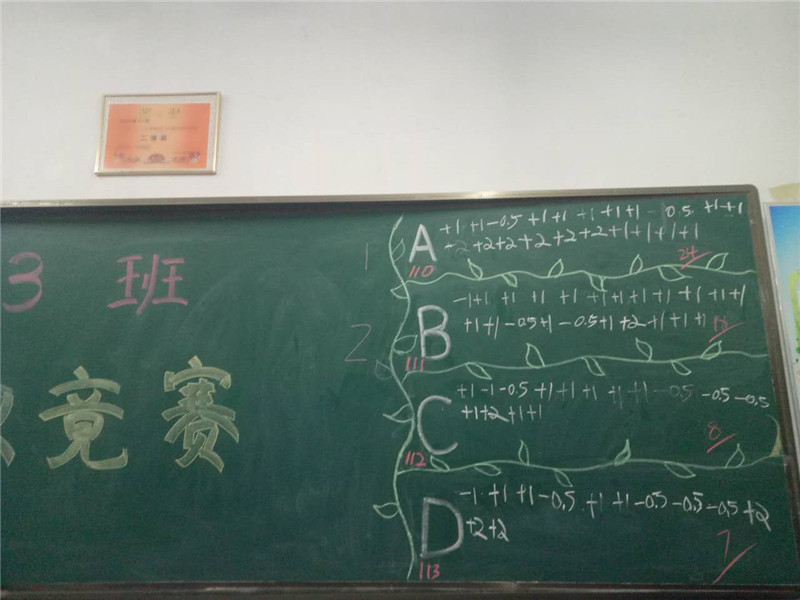 3 班
竞赛
1
A
+1 +1 -0.5 +1 +1 +1 +1 +1 -0.5 +1 +1
-2 +2 +2 +2 +2 +2 +1 +1 +1 +1
24
110
2
B
-1 +1 +1 +1 +1 +1 +1 +1 +1 +1 +1 +1
+1 +1 -0.5 +1 -0.5 +1 +2 +1 +1 +1
111
C
+1 -1 -0.5 +1 +1 +1 +1 +1 -0.5 -0.5 -0.5
+1 +2 +1 +1
8
112
D
-1 +1 +1 -0.5 +1 +1 -0.5 -0.5 -0.5 +2
+2 +2
7
113